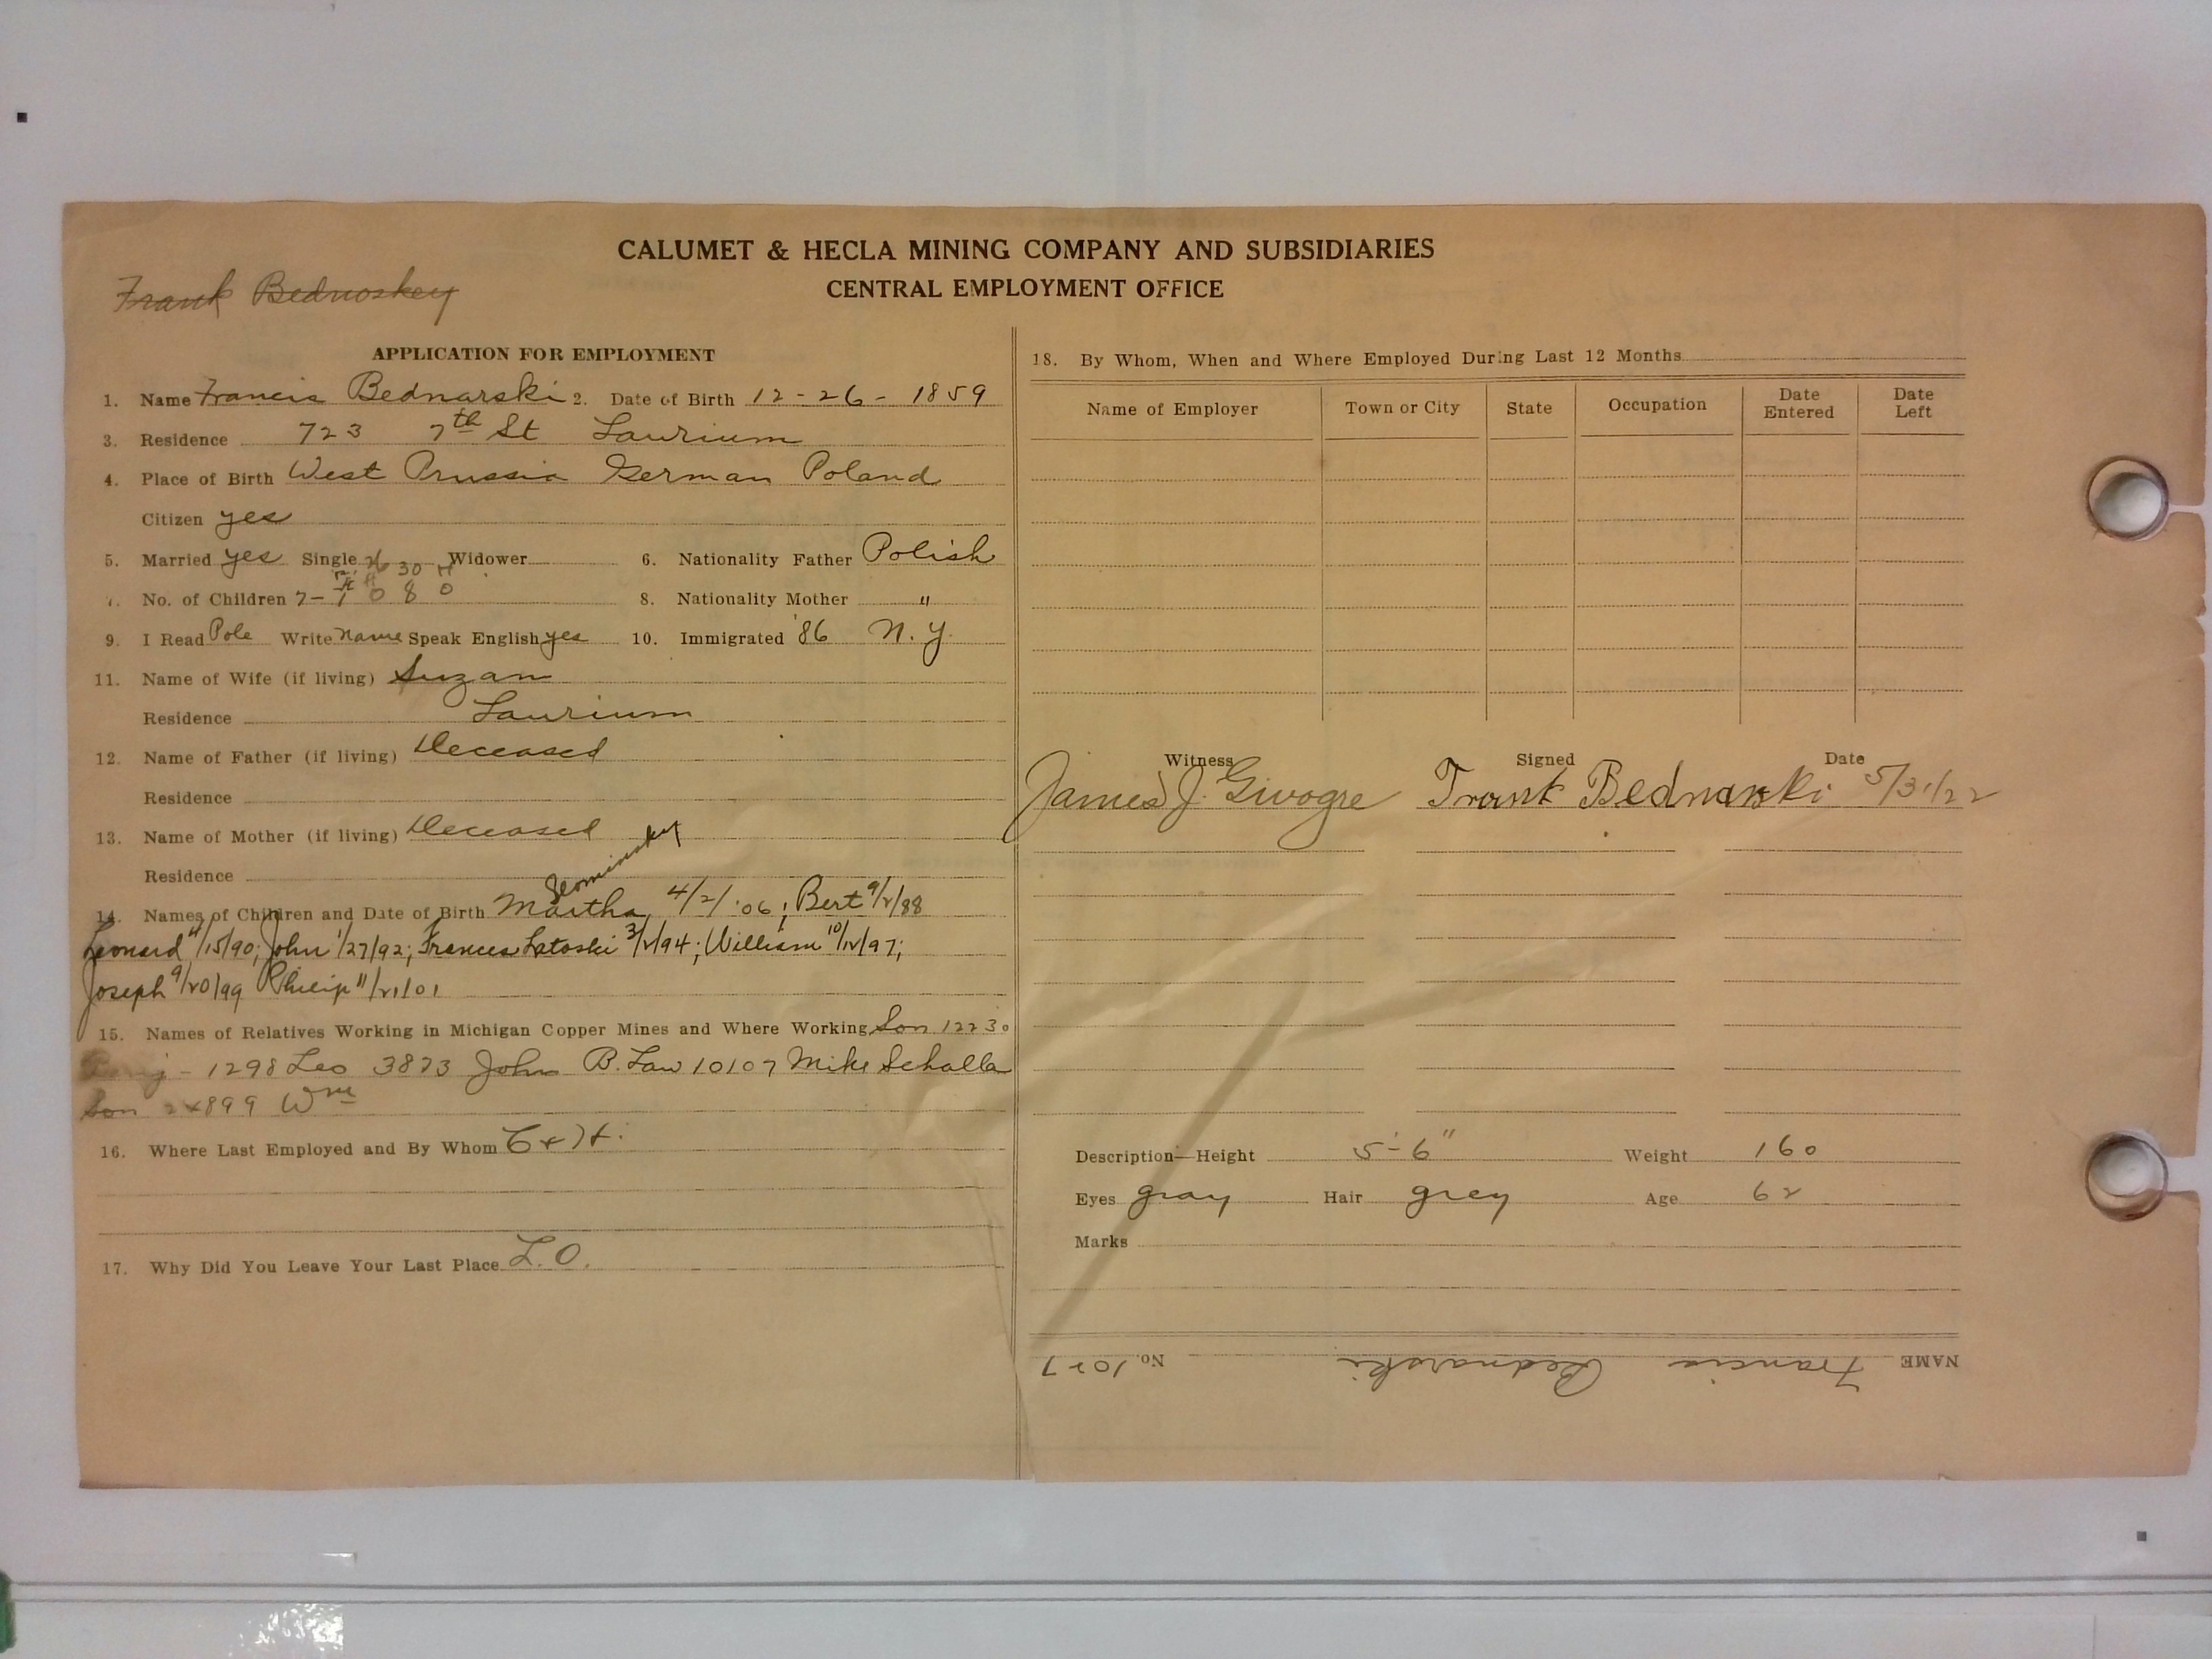 CALUMET & HECLA MINING COMPANY AND SUBSIDIARIES
CENTRAL EMPLOYMENT OFFICE
Frank Bednoskey
APPLICATION FOR EMPLOYMENT
1. Name Francis Bednarski 2. Date of Birth 12-26-1859
3. Residence 723 7th St Laurium
4. Place of Birth West Prussia German Poland
Citizen yes
5. Married yes Single Widower 6. Nationality Father Polish
No. of Children 7- 8. Nationality Mother "
9. I Read Pole Write name Speak English yes 10. Immigrated '86 N.Y.
11. Name of Wife (if living) Suzan
Residence Laurium
12. Name of Father (if living) Deceased
Residence
13. Name of Mother (if living) Deceased
Residence
14. Names of Children and Date of Birth Martha 4/2/'06; Bert 9/2/88
Leonard 4/15/90; John 1/27/92; Frances Latoski 3/2/94; William 10/12/97;
Joseph 9/20/99 Philip 11/21/01
15. Names of Relatives Working in Michigan Copper Mines and Where Working Son 12230
- 1298 Leo 3823 John B. Law 10107 Mike Scholla
Son 24899 Wm
16. Where Last Employed and By Whom C+H.
17. Why Did You Leave Your Last Place L.O.
18. By Whom, When and Where Employed During Last 12 Months
Name of Employer Town or City State Occupation Date Entered Date Left
Witness Signed Date
James J. Frank Bednarski 5/31/22
Description—Height 5'-6" Weight 160
Eyes gray Hair grey Age 62
Marks
NAME Francis Bednarski No. 1027